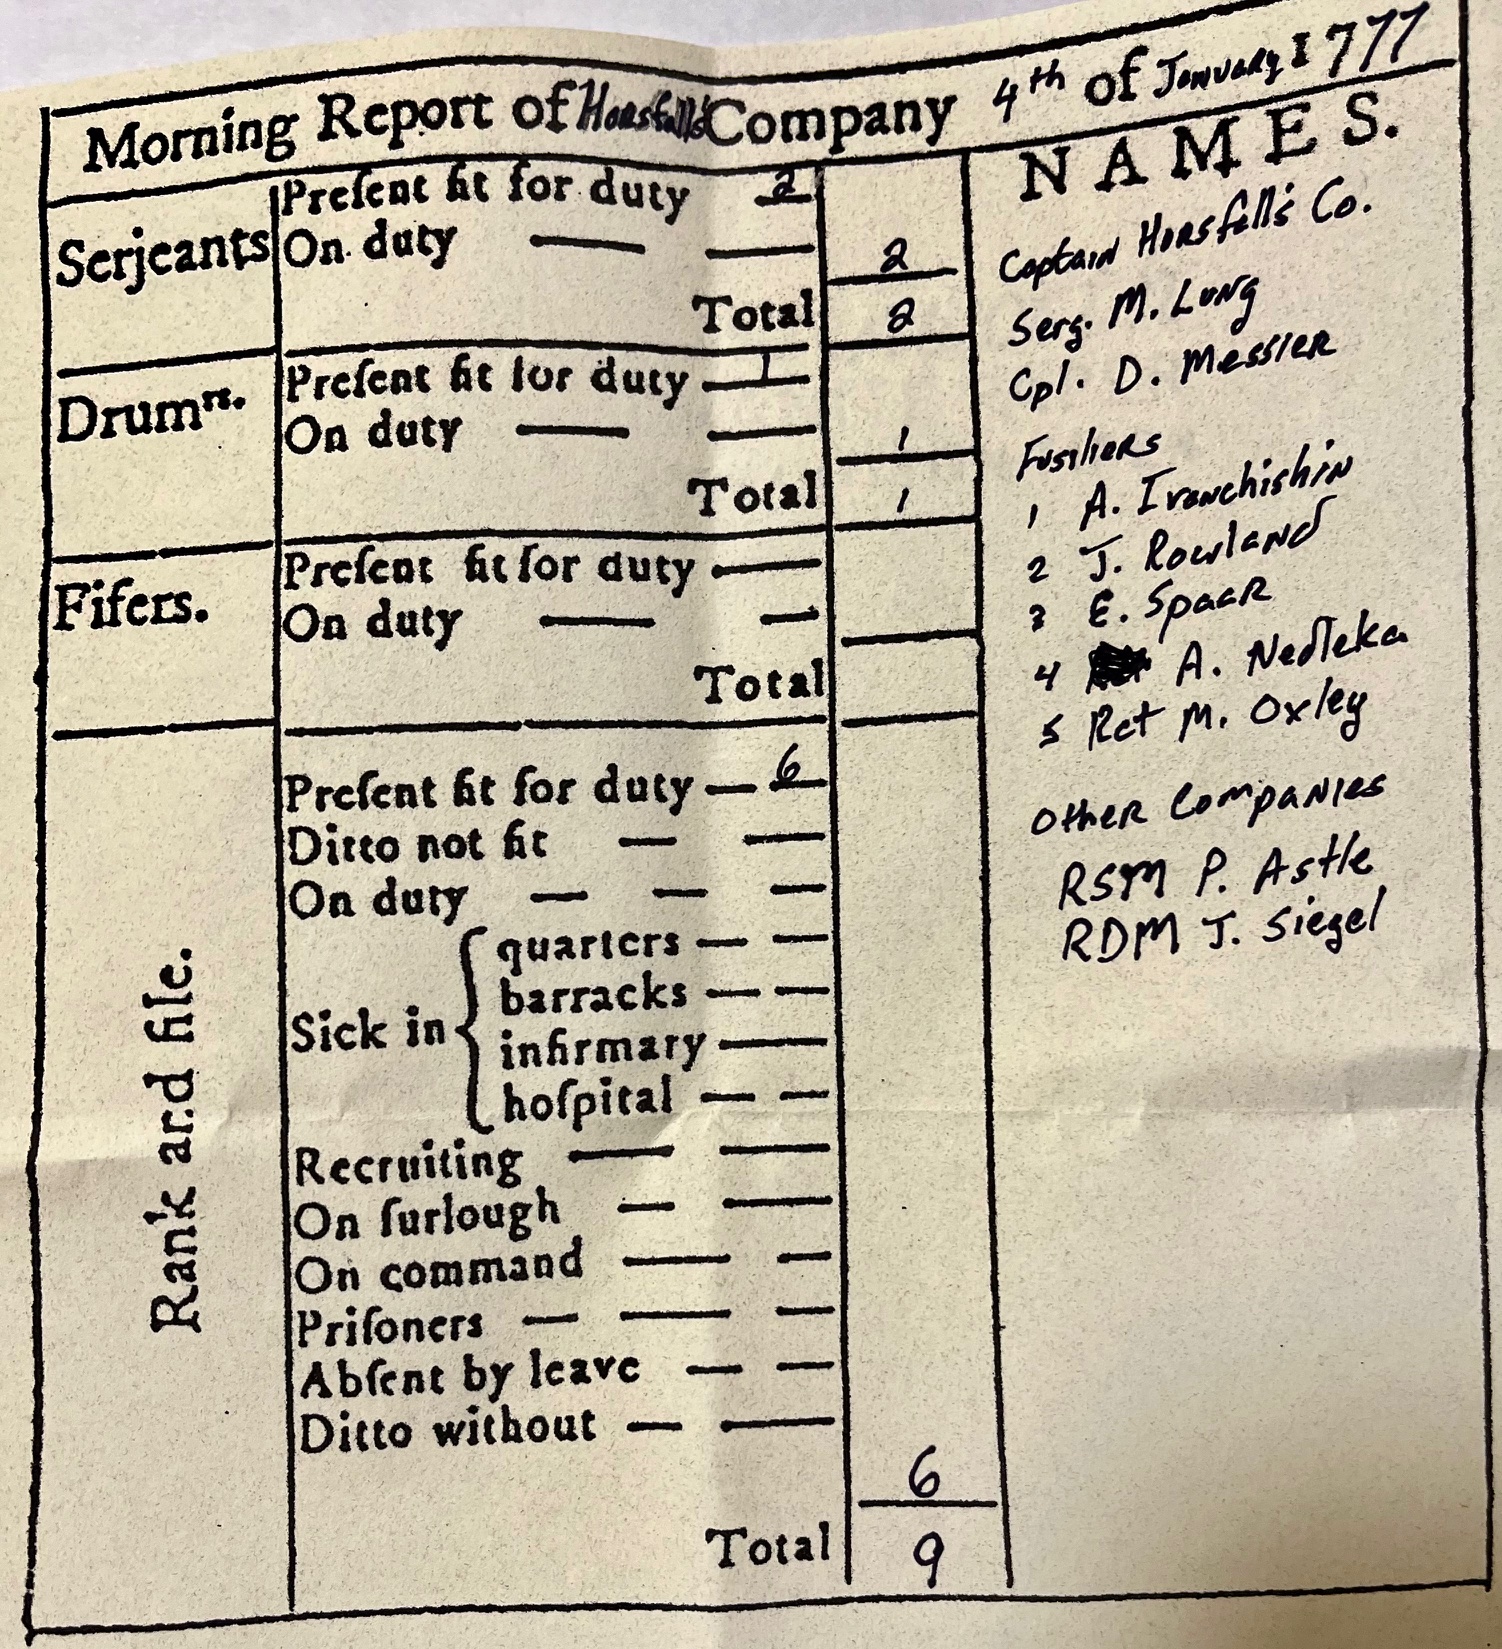 Morning Report of Horsfall's Company 4th of January 1777
Serjeants
Preſent fit for duty — 2
On duty — —
2
Total 2
Drumrs.
Preſent fit for duty — 1
On duty — —
1
Total 1
Fifers.
Preſent fit for duty —
On duty — —
Total
Rank and file.
Preſent fit for duty — 6
Ditto not fit — —
On duty — — —
Sick in
quarters — —
barracks — —
infirmary —
hoſpital — —
Recruiting — —
On furlough — —
On command — —
Priſoners — — —
Abſent by leave — —
Ditto without — —
6
Total 9
NAMES.
Captain Horsfall's Co.
Serg. M. Lung
Cpl. D. Messier
Fusiliers
1 A. Ivanchishin
2 J. Rowland
3 E. Spaar
4 A. Nedleka
5 Rct M. Oxley
Other Companies
RSM P. Astle
RDM J. Siegel